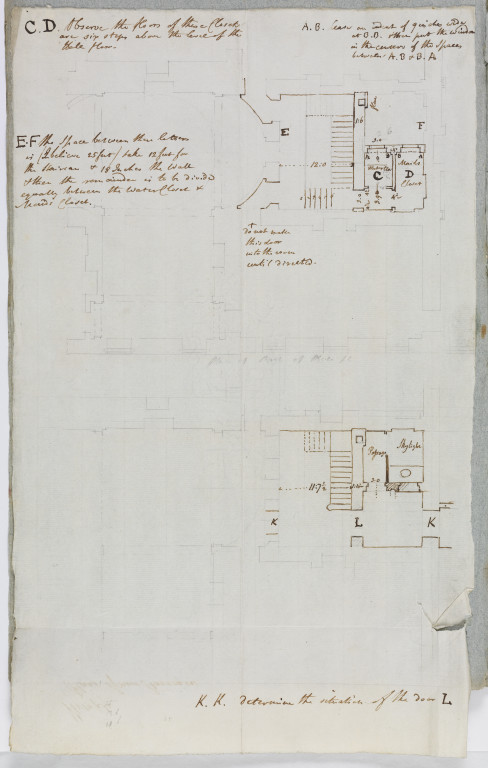 C.D. Observe the floors of these Closets
are six steps above the level of the
Hall floor.
A.B. leave an of 9 inches wide
at B.B. & then put the window
in the centers of the spaces
between A.B & B.A
E.F the space between these letters
is (I believe 25 feet) take 12 feet for
the Staircase & 18 Inches the Wall
& then the remainder is to be divided
equally between the Water Closet &
Maids Closet.
E
F
12:0
1:6
3:0
A
B
B
A
C
D
Maids
Closet
do not make
this door
into the room
until directed.
11:7½
Passage
Skylight
3:0
K
L
K
K.K. determine the situation of the door L